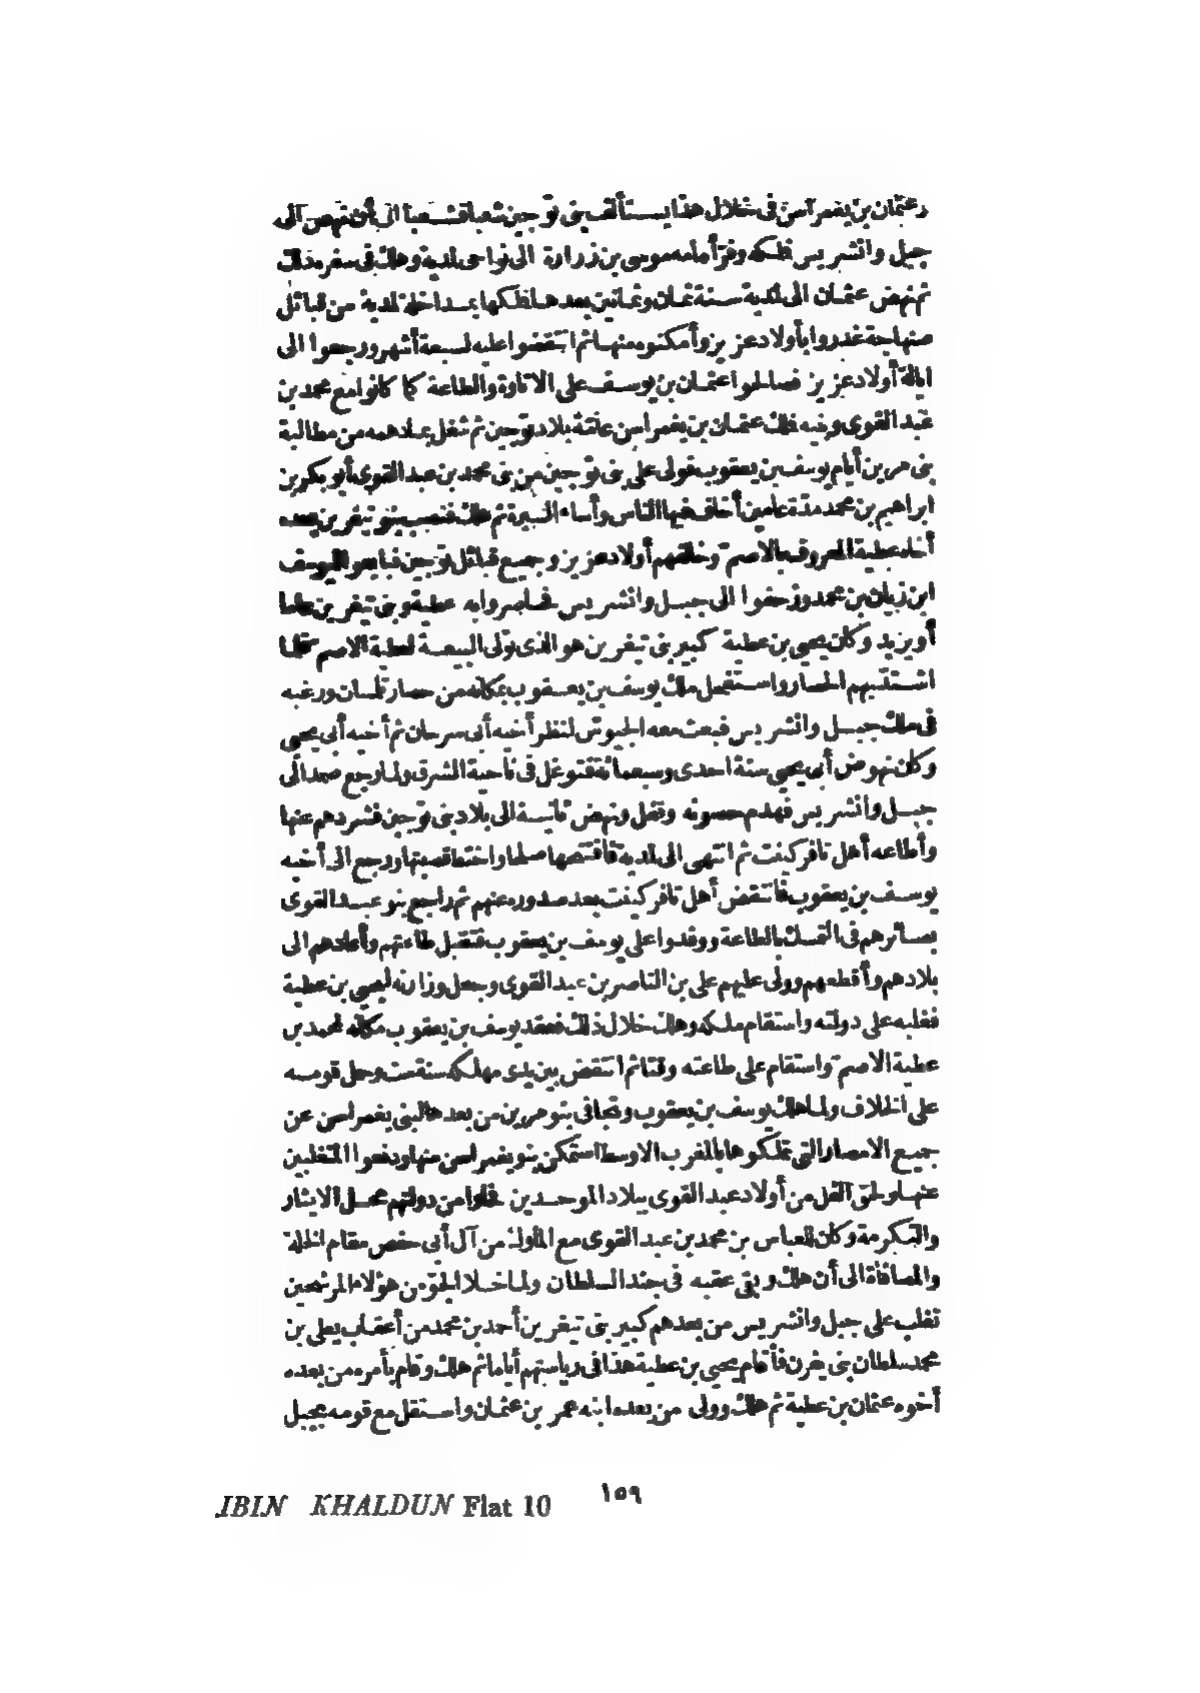 وعثمان بن يغمراسن فى خلال هذا يستألف بنى توجين شعبا فشعبا الى أن نهض الى
جبل وانشريس فملكه وفر أمامه موسى بن زرارة الى نواحى لمدية وهلك فى سفره ذلك
ثم نهض عثمان الى لمدية سنة ثمان وثمانين بعدها فملكها بمداخلة لمدية من قبائل
صنهاجة غدروا بأولاد عزيز وأمكنوه منها ثم انتقضوا عليه لسبعة أشهر ورجعوا الى
ايالة أولاد عزيز فصالحوا عثمان بن يوسف على الاتاوة والطاعة كما كانوا مع محمد بن
عبد القوى وبنيه فملك عثمان بن يغمراسن عامة بلاد توجين ثم شغل بما دهمه من مطالبة
بنى مرين أيام يوسف بن يعقوب فولى على بنى توجين من بنى محمد بن عبد القوى أبو بكر بن
ابراهيم بن محمد مدة عامين أخاف فيها الناس وأساء السيرة ثم هلك فنصب بنو تيغرين بعده
أخاه عطية المعروف بالاصم وخالفهم أولاد عزيز وجميع قبائل توجين فبايعوا ليوسف
ابن زيان بن محمد وزحفوا الى جبل وانشريس فحاصروا به عطية وبنى تيغرين عاما
أو يزيد وكان يحيى بن عطية كبير بنى تيغرين هو الذى تولى البيعة لعطية الاصم فلما
اشتد بهم الحصار واستفحل ملك يوسف بن يعقوب بمكانه من حصار تلمسان ورغبه
فى ملك جبل وانشريس فبعث معه الجيوش لنظر أخيه أبى سرحان ثم أخيه أبى يحيى
وكان نهوض أبى يحيى سنة احدى وسبعمائة فتوغل فى ناحية المشرق ولما رجع صمد الى
جبل وانشريس فهدم حصونه وقفل ونهض ثانية الى بلاد بنى توجين فشردهم عنها
وأطاعه أهل تافركينت ثم انتهى الى لمدية فافتتحها صلحا واختط قصبتها ورجع الى أخيه
يوسف بن يعقوب فانتقض أهل تافركينت بعد صدوره عنهم ثم راجع بنو عبد القوى
بصائرهم فى التمسك بالطاعة ووفدوا على يوسف بن يعقوب فتقبل طاعتهم وأعادهم الى
بلادهم وأقطعهم وولى عليهم على بن الناصر بن عبد القوى وجعل وزارته ليحيى بن عطية
فغلبه على دولته واستقام ملكه وهلك خلال ذلك فعقد يوسف بن يعقوب مكانه لمحمد بن
عطية الاصم واستقام على طاعته وقتا ثم انتقض بين يدى مهلكه سنة ست وحمل قومه
على الخلاف ولما هلك يوسف بن يعقوب وتجافى بنو مرين من بعدها لبنى يغمراسن عن
جميع الامصار التى تملكوها بالمغرب الاوسط استمكن بنو يغمراسن منها ودفعوا المتغلبين
عنها ولحق الفل من أولاد عبد القوى ببلاد الموحدين فحلوا من دولتهم محل الايثار
والتكرمة وكان للعباس بن محمد بن عبد القوى مع الملوك من آل أبى حفص مقام الخلة
والمصافاة الى أن هلك وبقى عقبه فى جند السلطان ولما خلا الجو من هؤلاء المرشحين
تغلب على جبل وانشريس من بعدهم كبير بنى تيغرين أحمد بن محمد من أعقاب يعلى بن
محمد سلطان بنى يفرن فأقام يحيى بن عطية هذا فى رياستهم أياما ثم هلك وقام بأمره من بعده
أخوه عثمان بن عطية ثم هلك وولى من بعده ابنه عمر بن عثمان واستقل مع قومه بجبل
١٥٩
IBIN KHALDUN Flat 10